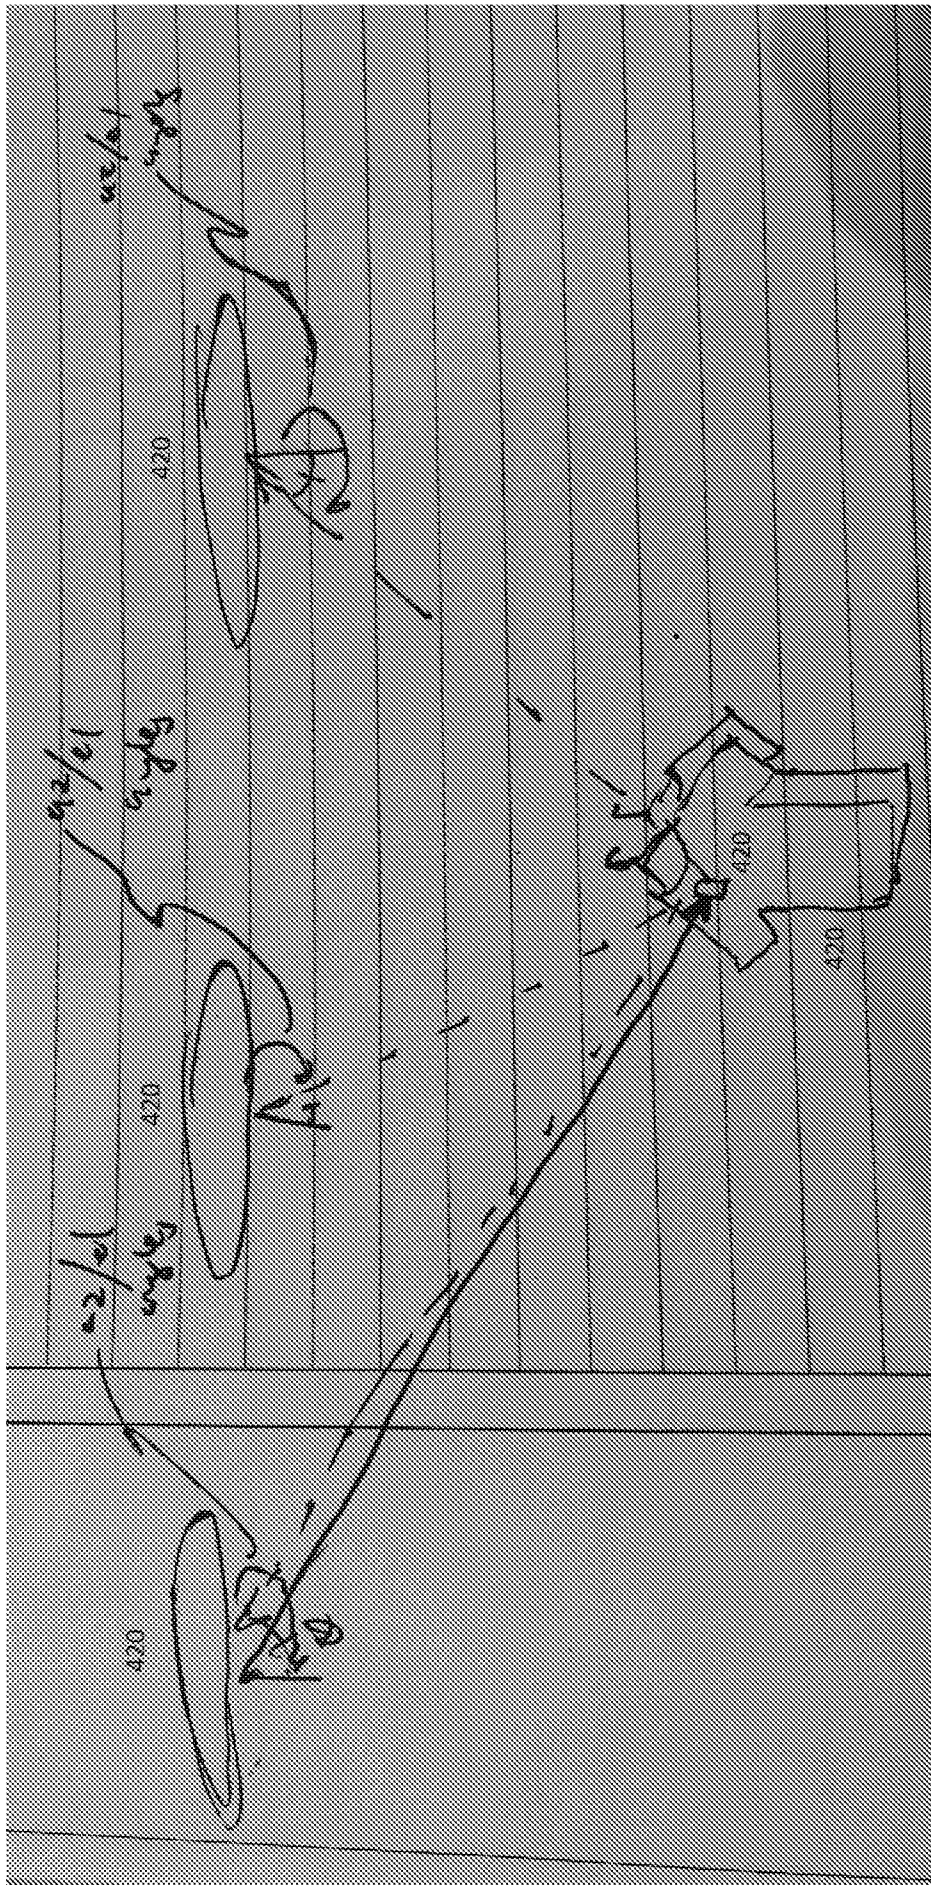 az/el
angles
420
az/el
angles
420
az/el
angles
420
420
420